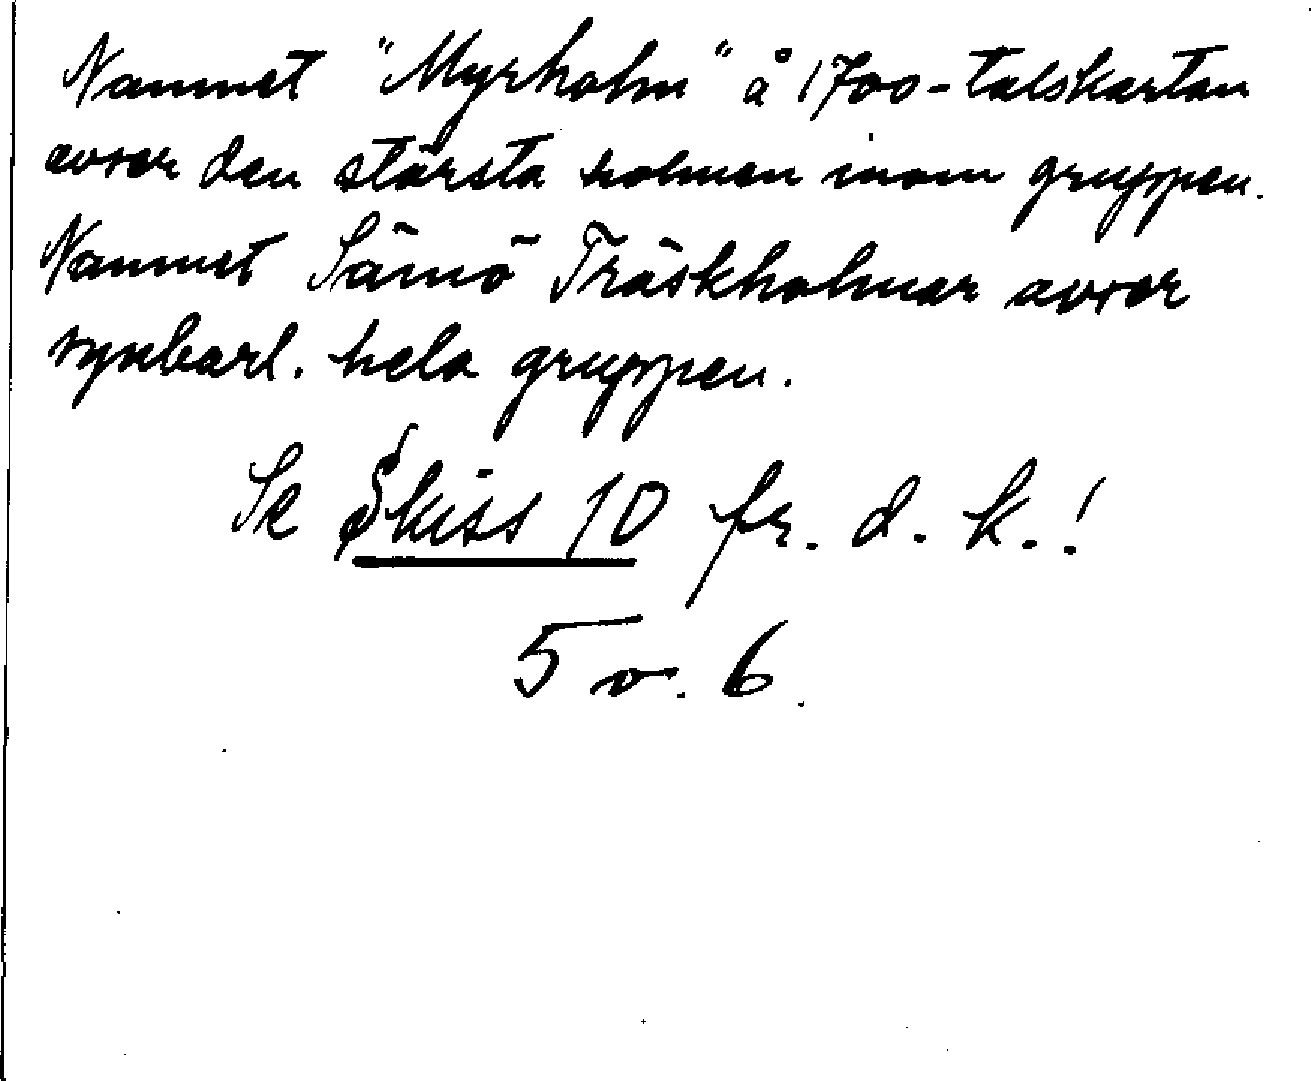 Namnet "Myrholm" å 1700-talskartan
avser den största holmen inom gruppen.
Namnet Sämö Träskholmar avser
synbarl. hela gruppen.
Se Skiss 10 fr. d. k.!
5 v. 6.